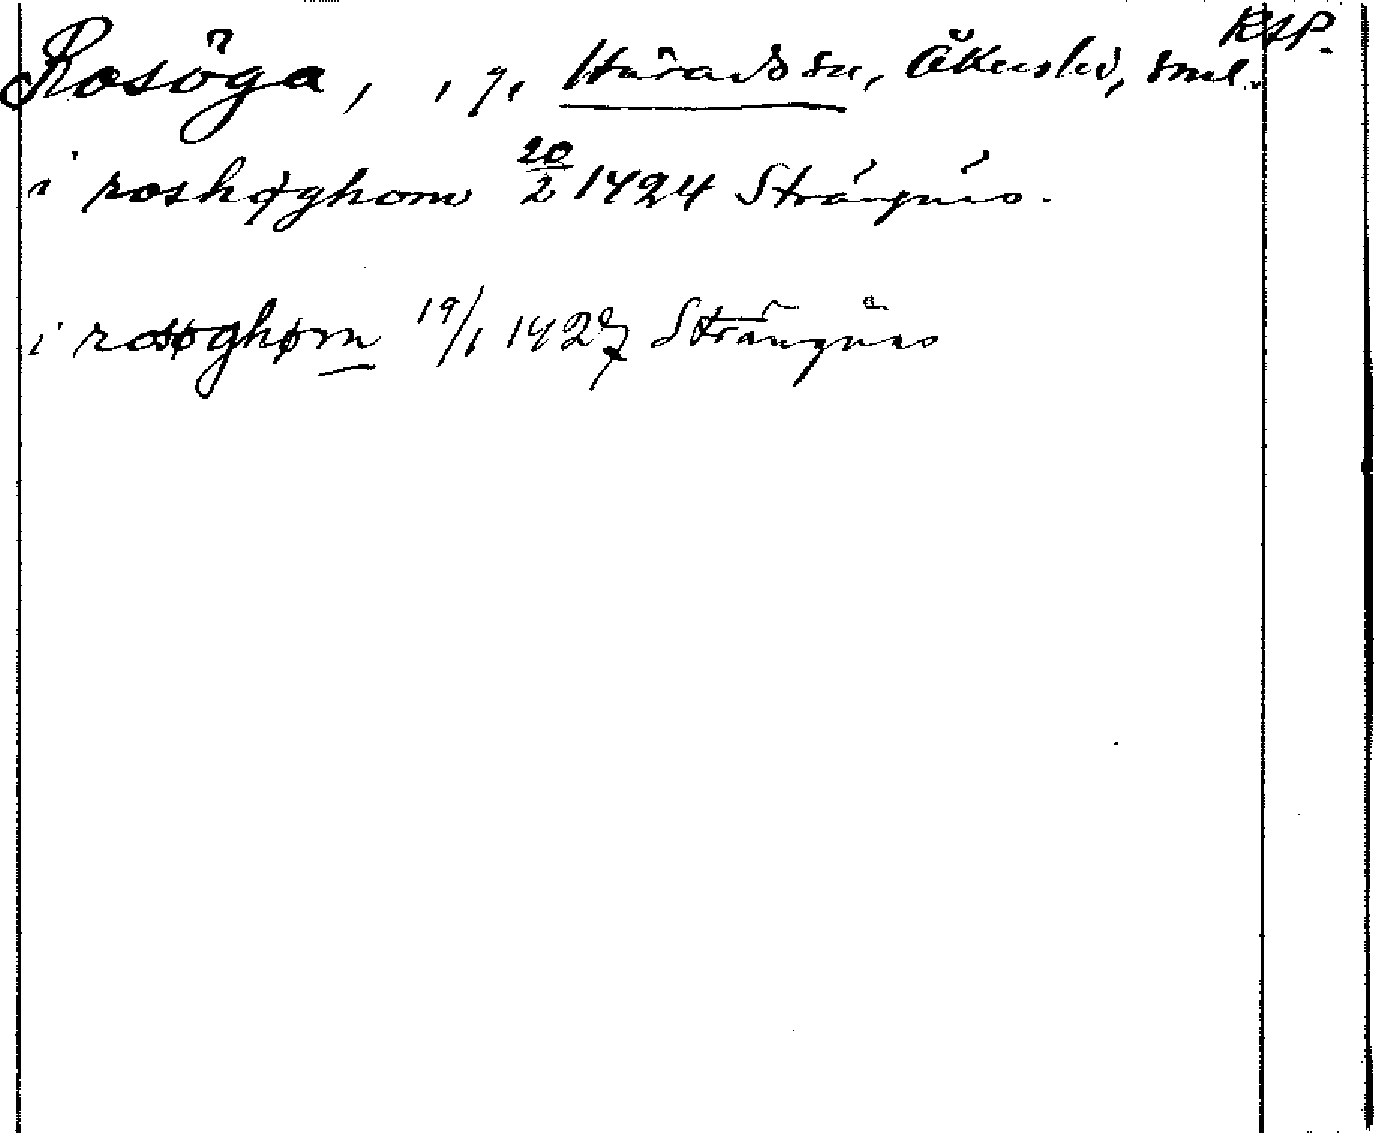 RAP.
Rosöga, , g, Härads sn, Åkerbo, Sml.
i roshøghom 20/2 1424 Strängnäs.
i rosøghøm 19/1 1427 Strängnäs